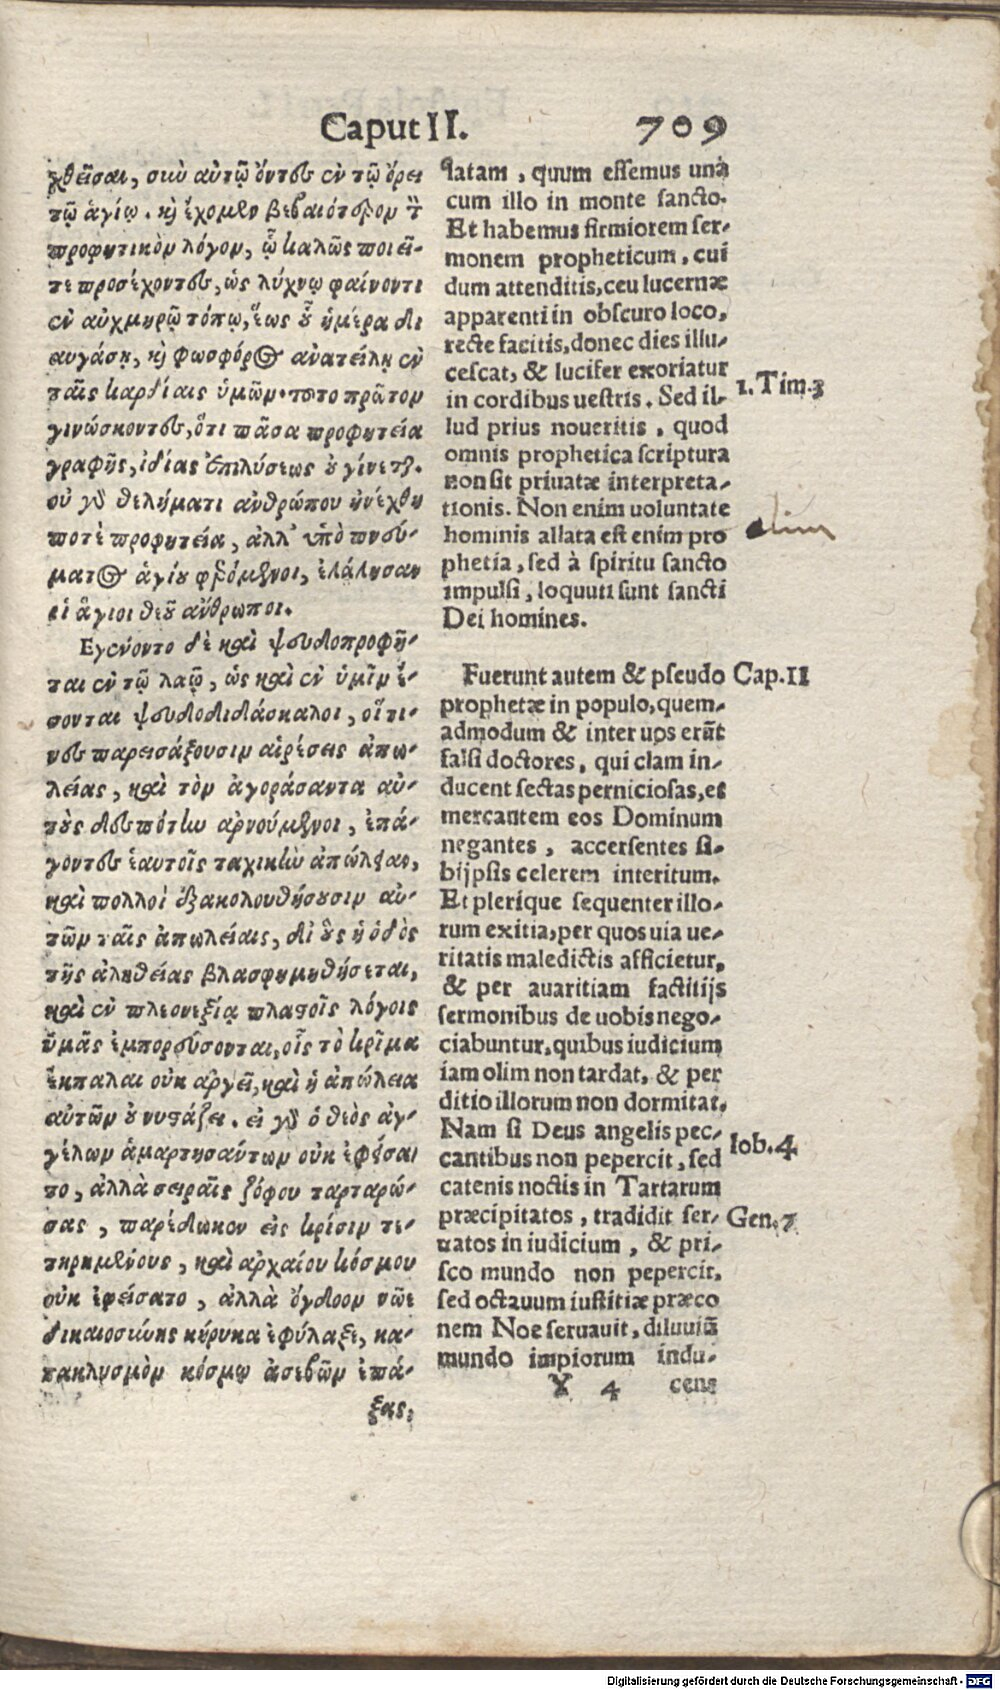 Caput II. 709
χθεῖσαι, σὺν αὐτῷ ὄντες ἐν τῷ ὄρει
τῷ ἁγίῳ. καὶ ἔχομεν βεβαιότερον τὸν
προφητικὸν λόγον, ᾧ καλῶς ποιεῖ-
τε προσέχοντες, ὡς λύχνῳ φαίνοντι
ἐν αὐχμηρῷ τόπῳ, ἕως οὗ ἡμέρα δι
αυγάσῃ, καὶ φωσφόρος ἀνατείλῃ ἐν
ταῖς καρδίαις ὑμῶν. τοῦτο πρῶτον
γινώσκοντες, ὅτι πᾶσα προφητεία
γραφῆς, ἰδίας ἐπιλύσεως οὐ γίνεται.
οὐ γὰρ θελήματι ἀνθρώπου ἠνέχθη
ποτὲ προφητεία, ἀλλ' ὑπὸ πνεύ-
ματος ἁγίου φερόμενοι, ἐλάλησαν
οἱ ἅγιοι θεοῦ ἄνθρωποι.
Εγένοντο δὲ καὶ ψευδοπροφῆ-
ται ἐν τῷ λαῷ, ὡς καὶ ἐν ὑμῖν ἔ-
σονται ψευδοδιδάσκαλοι, οἵτι-
νες παρεισάξουσιν αἱρέσεις ἀπω-
λείας, καὶ τὸν ἀγοράσαντα αὐ-
τοὺς δεσπότην ἀρνούμενοι, ἐπά-
γοντες ἑαυτοῖς ταχινὴν ἀπώλειαν,
καὶ πολλοὶ ἐξακολουθήσουσιν αὐ-
τῶν ταῖς ἀπωλείαις, δι' οὓς ἡ ὁδὸς
τῆς ἀληθείας βλασφημηθήσεται,
καὶ ἐν πλεονεξίᾳ πλαστοῖς λόγοις
ὑμᾶς ἐμπορεύσονται, οἷς τὸ κρῖμα
ἔκπαλαι οὐκ ἀργεῖ, καὶ ἡ ἀπώλεια
αὐτῶν οὐ νυστάζει. εἰ γὰρ ὁ θεὸς ἀγ-
γέλων ἁμαρτησάντων οὐκ ἐφείσα
το, ἀλλὰ σειραῖς ζόφου ταρταρώ-
σας, παρέδωκεν εἰς κρίσιν τε-
τηρημένους, καὶ ἀρχαίου κόσμου
οὐκ ἐφείσατο, ἀλλὰ ὄγδοον νῶε
δικαιοσύνης κήρυκα ἐφύλαξε, κα-
τακλυσμὸν κόσμῳ ἀσεβῶν ἐπά-
ξας,
latam, quum essemus unà
cum illo in monte sancto.
Et habemus firmiorem ser-
monem propheticum, cui
dum attenditis, ceu lucernæ
apparenti in obscuro loco,
recte facitis, donec dies illu-
cescat, & lucifer exoriatur
in cordibus uestris. Sed il-
lud prius noueritis, quod
omnis prophetica scriptura
non sit priuatæ interpreta-
tionis. Non enim uoluntate
hominis allata est enim pro
phetia, sed à spiritu sancto
impulsi, loquuti sunt sancti
Dei homines.
Fuerunt autem & pseudo
prophetæ in populo, quem-
admodum & inter uos erūt
falsi doctores, qui clam in-
ducent sectas perniciosas, et
mercantem eos Dominum
negantes, accersentes si-
bijpsis celerem interitum.
Et plerique sequenter illo-
rum exitia, per quos uia ue-
ritatis maledictis afficietur,
& per avaritiam factitijs
sermonibus de uobis nego-
ciabuntur, quibus iudicium
iam olim non tardat, & per
ditio illorum non dormitat.
Nam si Deus angelis pec-
cantibus non pepercit, sed
catenis noctis in Tartarum
præcipitatos, tradidit ser-
uatos in iudicium, & pri-
sco mundo non pepercit,
sed octauum iustitiæ præco
nem Noe seruauit, diluuiū
mundo impiorum indu-
Y 4 cens
1. Tim. 3
olim
Cap. II
Iob. 4
Gen. 7
Digitalisierung gefördert durch die Deutsche Forschungsgemeinschaft - DFG